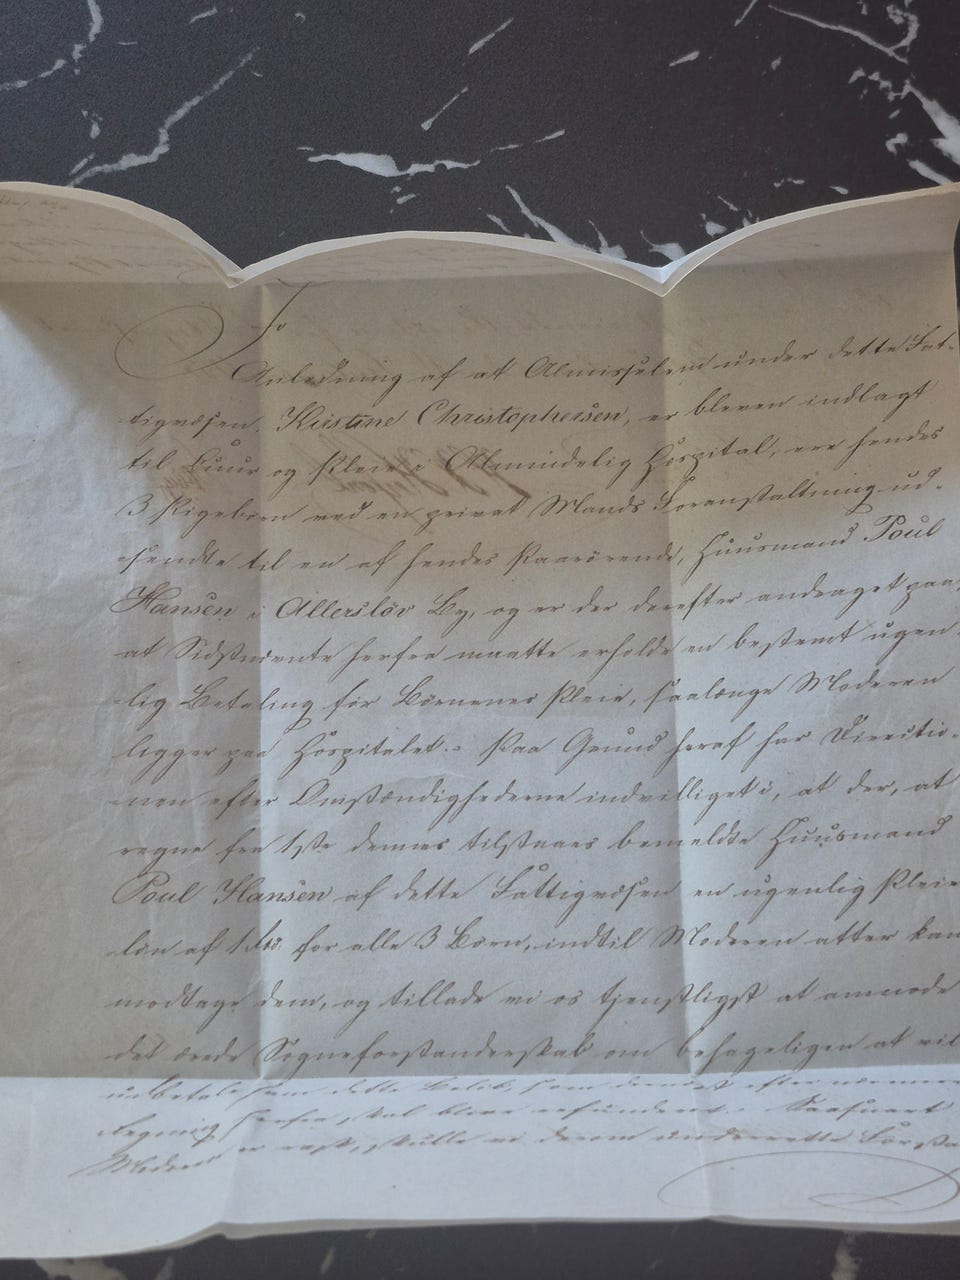 I
Anledning af at Almisselem under dette Fat-
tigvæsen, Kirstine Christophersen, er bleven indlagt
til Cuur og Pleie i Almindelig Hospital, ere hendes
3 Pigebørn ved en privat Mands Foranstaltning ud-
sendte til en af hendes Paarørende, Huusmand Poul
Hansen i Allerslöv By, og er der derefter andraget paa,
at Sidstnævnte herfra maatte erholde en bestemt ugen-
lig Betaling for Børnenes Pleie, saalænge Moderen
ligger paa Hospitalet.- Paa Grund heraf har Directio-
nen efter Omstændighederne indvilliget i, at der, at
regne fra 1ste dennes tilstaaes bemeldte Huusmand
Poul Hansen af dette Fattigvæsen en ugenlig Pleie
løn af 1 for alle 3 Børn, indtil Moderen atter kan
modtage dem, og tillade vi os tjenstligst at anmode
det ærede Sogneforstanderskab om behageligen at vil
udbetale ham dette Beløb, som derefter nærmere
Regning herfra, skal blive refunderet. Saasnart
Moderen er rask, skulle vi derom underrette Forsta